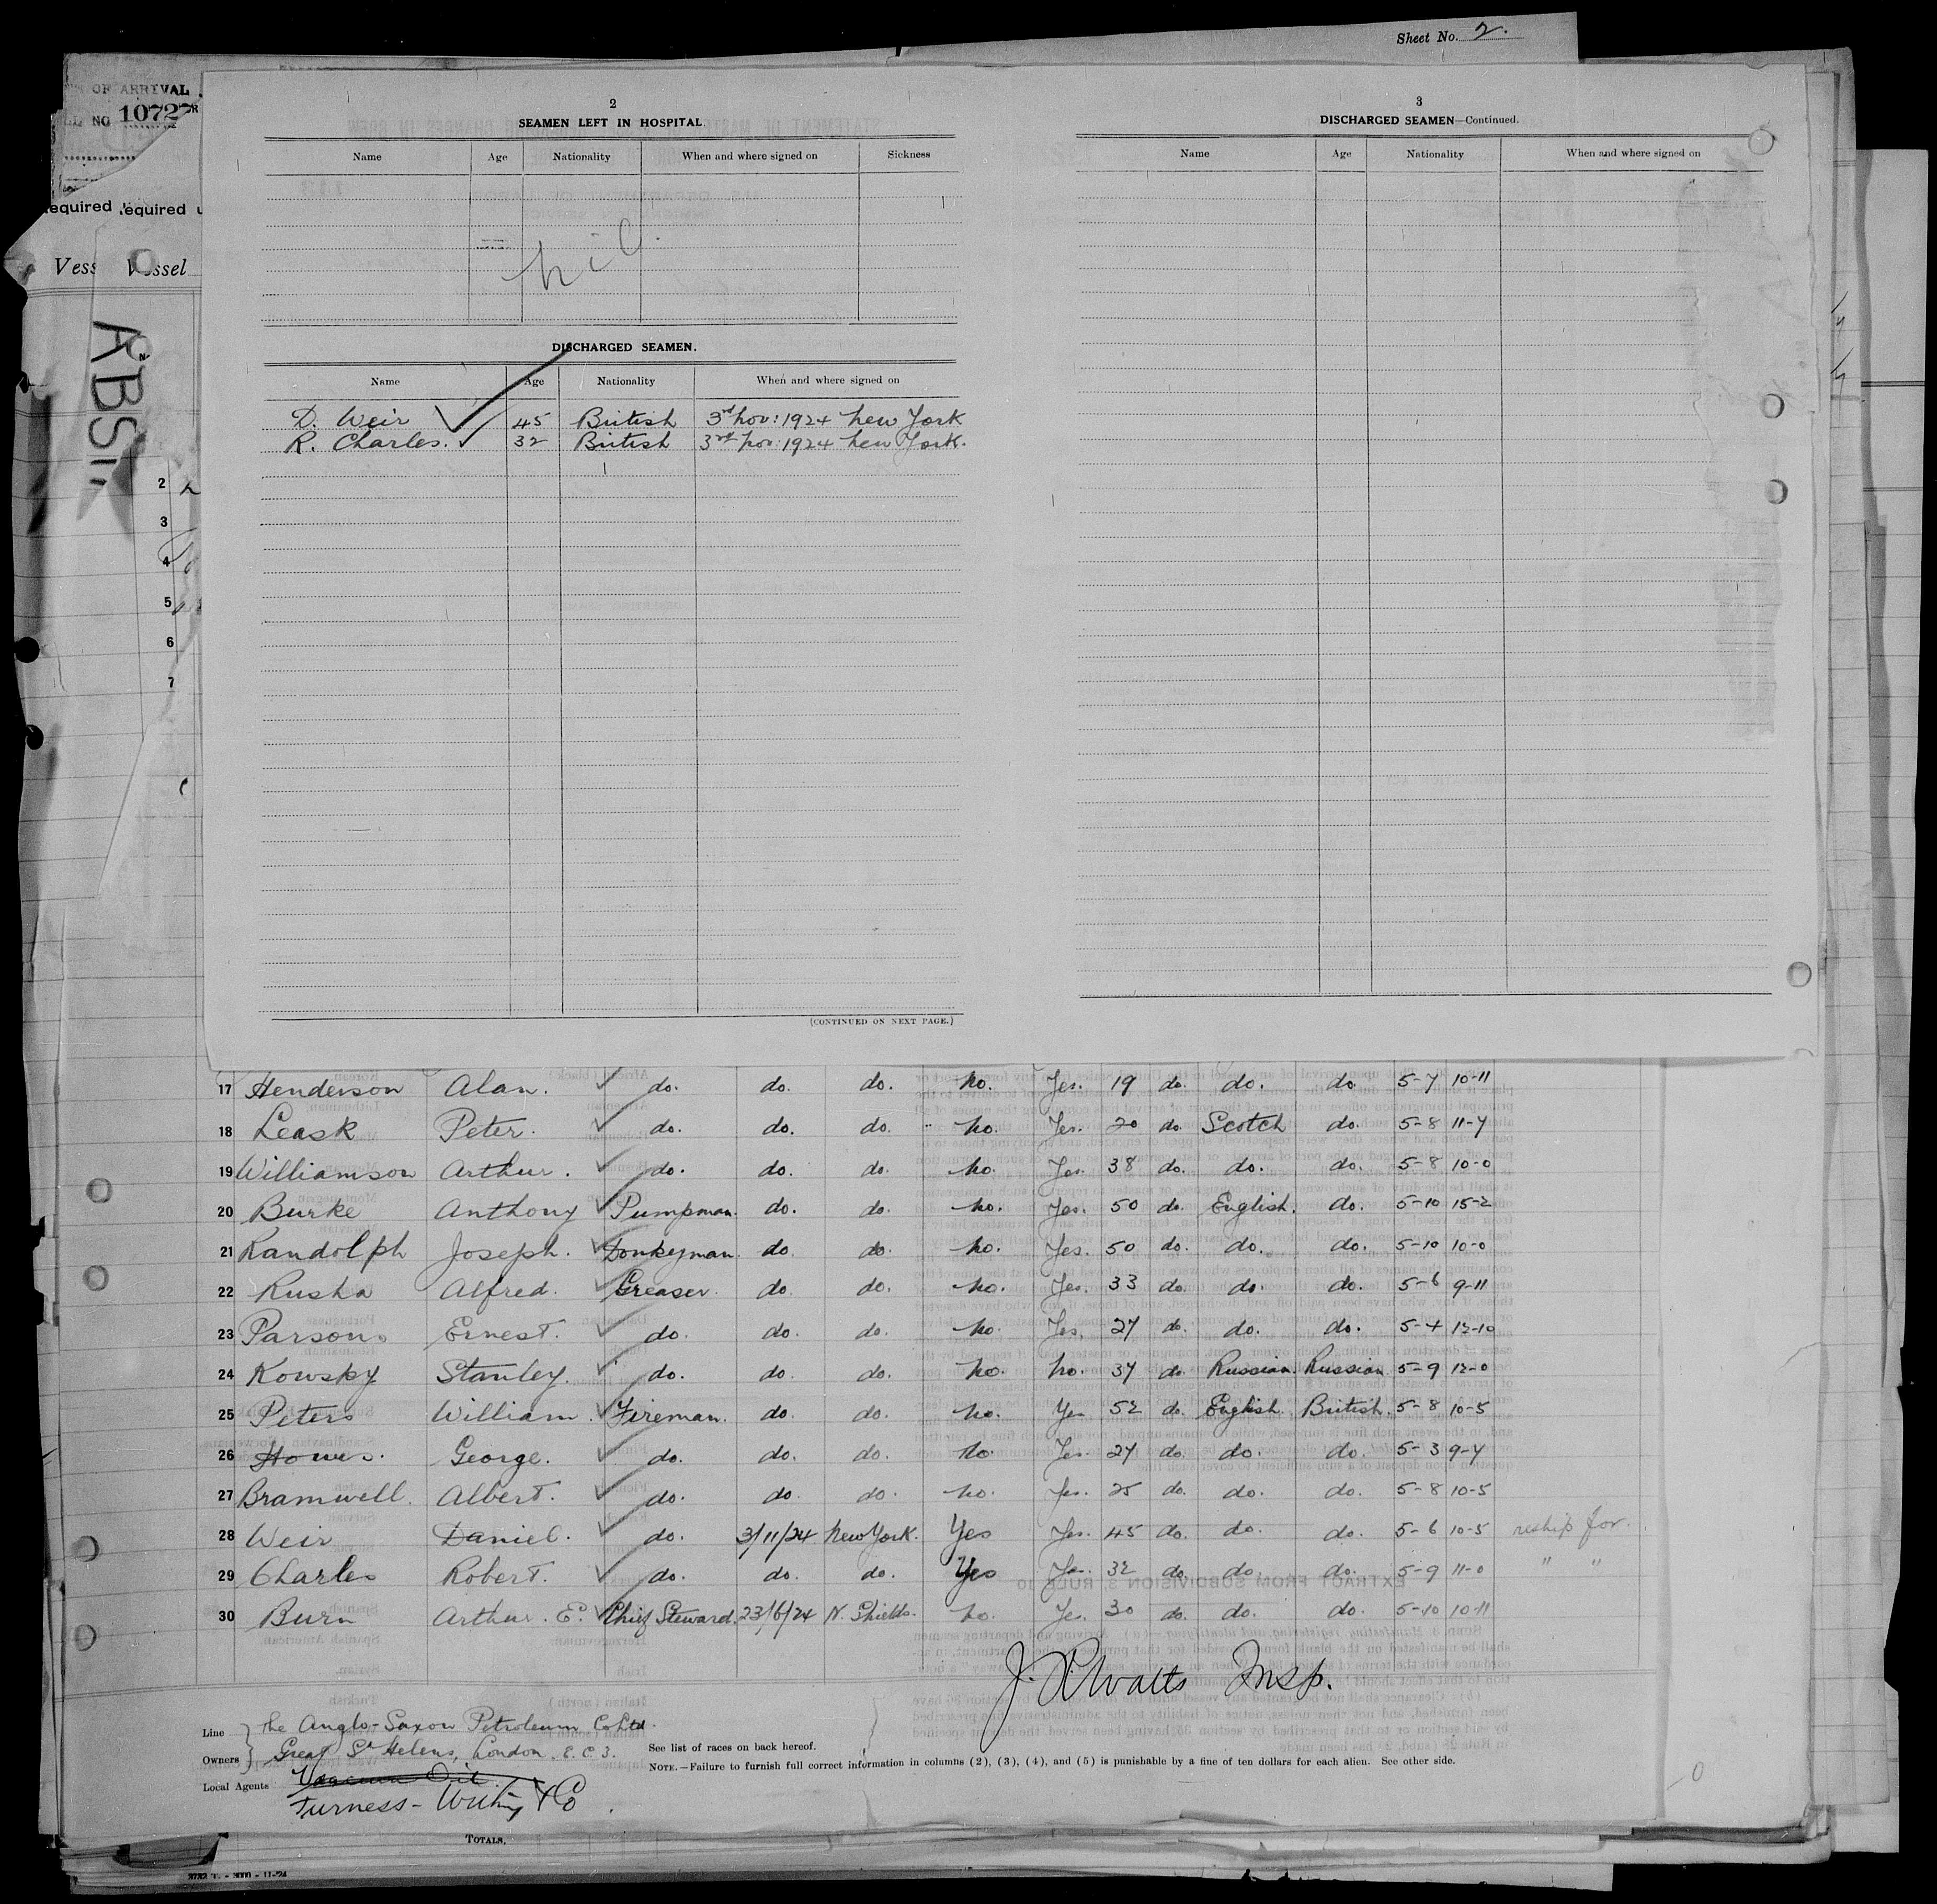 Sheet No. 2.
OF ARRIVAL
NO 10727
equired required u
Vess Vessel
2
3
4
5
6
7
2
SEAMEN LEFT IN HOSPITAL
Name Age Nationality When and where signed on Sickness
nil.
DISCHARGED SEAMEN.
Name Age Nationality When and where signed on
D. Weir 45 British 3rd Nov: 1924 New York
R. Charles. 32 British 3rd Nov: 1924 New York.
(CONTINUED ON NEXT PAGE.)
3
DISCHARGED SEAMEN—Continued.
Name Age Nationality When and where signed on
17 Henderson Alan. do. do. do. No. Yes. 19 do. do. do. 5-7 10-11
18 Leask Peter. do. do. do. No. Yes. 20 do. Scotch do. 5-8 11-7
19 Williamson Arthur. do. do. do. No. Yes. 38 do. do. do. 5-8 10-0
20 Burke Anthony Pumpman. do. do. No. Yes. 50 do. English. do. 5-10 15-2
21 Randolph Joseph. Donkeyman. do. do. No. Yes. 50 do. do. do. 5-10 10-0
22 Rusha Alfred. Greaser. do. do. No. Yes. 33 do. do. do. 5-6 9-11
23 Parsons Ernest. do. do. do. No. Yes. 27 do. do. do. 5-4 12-10
24 Kowsky Stanley. do. do. do. No. No. 37 do. Russian. Russian. 5-9 12-0
25 Peters William. Fireman. do. do. No. Yes 52 do. English. British. 5-8 10-5
26 Howes. George. do. do. do. No. Yes. 27 do. do. do. 5-3 9-7
27 Bramwell. Albert. do. do. do. No. Yes. 25 do. do. do. 5-8 10-5
28 Weir Daniel. do. 3/11/24 New York. Yes Yes. 45 do. do. do. 5-6 10-5 reship for.
29 Charles Robert. do. do. do. Yes Yes. 32 do. do. do. 5-9 11-0 " "
30 Burn Arthur. E. Chief Steward. 23/6/24 N. Shields. No. Yes. 30 do. do. do. 5-10 10-11
Watts Insp.
Line The Anglo-Saxon Petroleum Co Ltd.
Owners Great St Helens, London, E.C.3.
See list of races on back hereof.
NOTE.—Failure to furnish full correct information in columns (2), (3), (4), and (5) is punishable by a fine of ten dollars for each alien. See other side.
Local Agents Vacuum Oil
Furness-Withy & Co.
TOTALS,